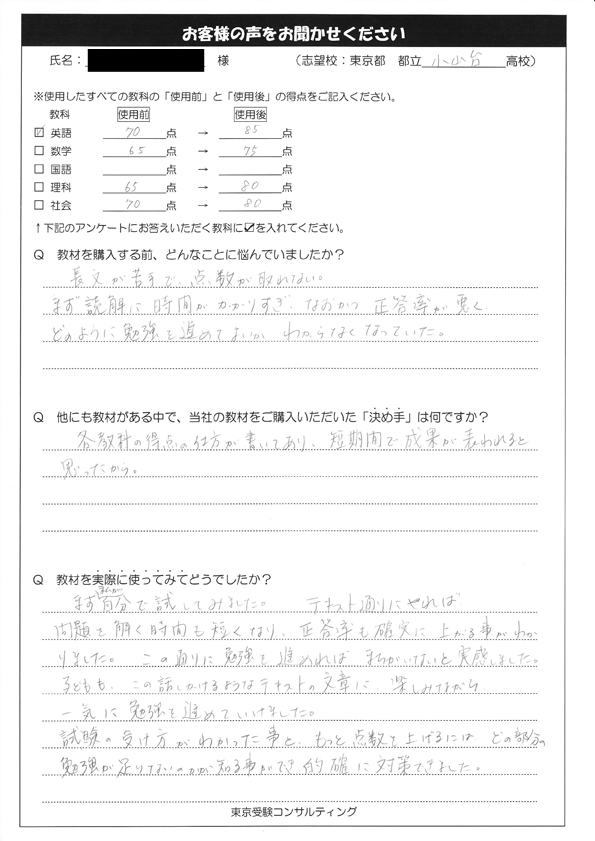 お客様の声をお聞かせください
氏名： 様 （志望校：東京都 都立 小山台 高校）
※使用したすべての教科の「使用前」と「使用後」の得点をご記入ください。
教科 使用前 使用後
☑ 英語 70 点 → 85 点
□ 数学 65 点 → 75 点
□ 国語 点 → 点
□ 理科 65 点 → 80 点
□ 社会 70 点 → 80 点
↑下記のアンケートにお答えいただく教科に☑を入れてください。
Q 教材を購入する前、どんなことに悩んでいましたか？
長文が苦手で、点数が取れない。
まず読解に時間がかかりすぎ、なおかつ 正答率が悪く
どのように勉強を進めてよいか わからなくなっていた。
Q 他にも教材がある中で、当社の教材をご購入いただいた「決め手」は何ですか？
各教科の得点の仕方が書いてあり、短期間で成果が表われると
思ったから。
Q 教材を実際に使ってみてどうでしたか？
まず自分で試してみました。 テキスト通りにやれば
問題を解く時間も短くなり、正答率も確実に上がる事がわか
りました。 この通りに勉強を進めればまちがいないと実感しました。
子どもも、この話しかけるようなテキストの文章に、楽しみながら
一気に勉強を進めていけました。
試験の受け方がわかった事と、もっと点数を上げるには どの部分の
勉強が足りないのかが知る事ができ的確に対策できました。
東京受験コンサルティング